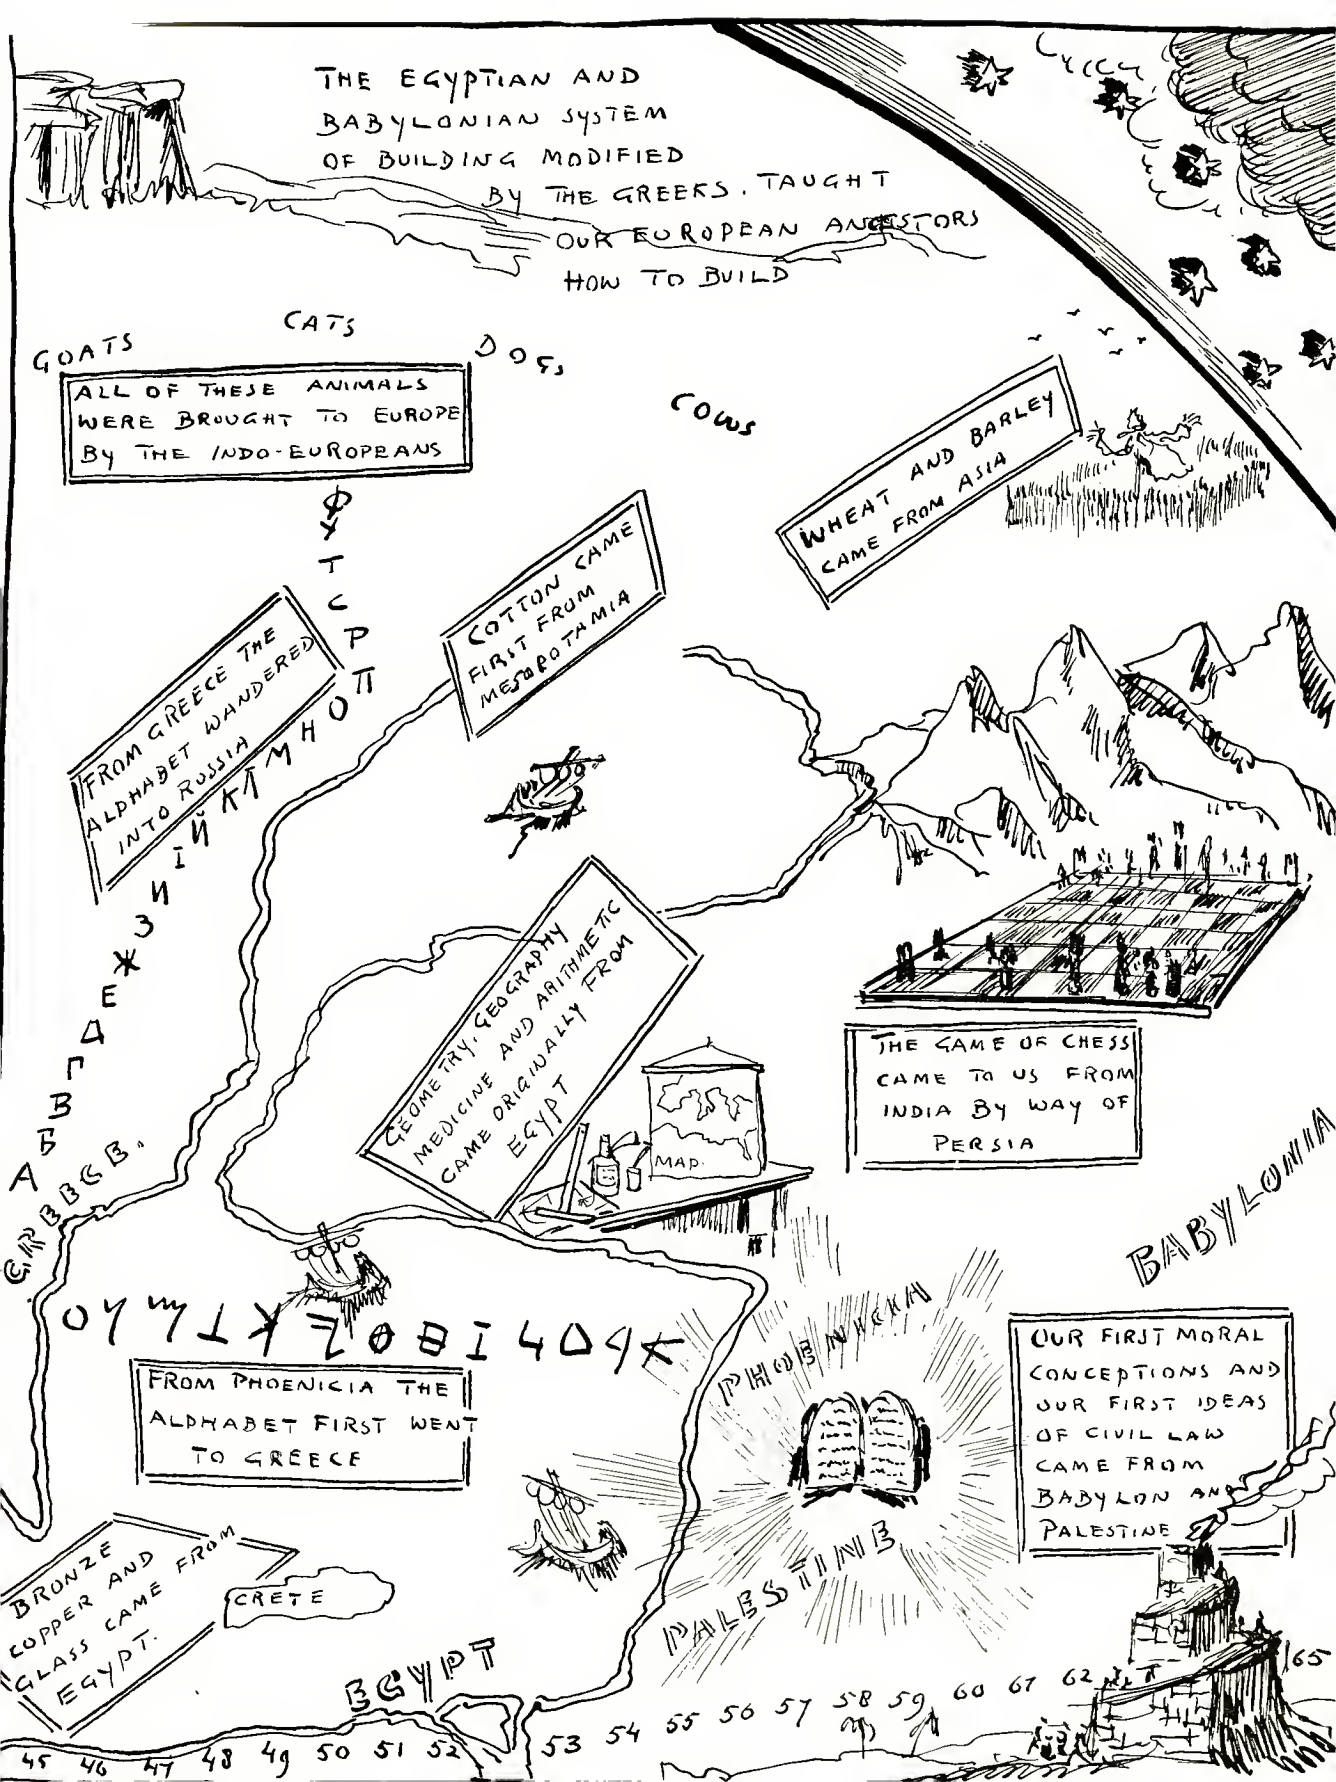 THE EGYPTIAN AND
BABYLONIAN SYSTEM
OF BUILDING MODIFIED
BY THE GREEKS. TAUGHT
OUR EUROPEAN ANCESTORS
HOW TO BUILD
GOATS
CATS
DOGS
COWS
ALL OF THESE ANIMALS
WERE BROUGHT TO EUROPE
BY THE INDO-EUROPEANS
WHEAT AND BARLEY
CAME FROM ASIA
COTTON CAME
FIRST FROM
MESOPOTAMIA
FROM GREECE THE
ALPHABET WANDERED
INTO RUSSIA
А Б В Г Д Е Ж З И І Й К Л М Н О П Р С Т У Ф
GEOMETRY, GEOGRAPHY
MEDICINE AND ARITHMETIC
CAME ORIGINALLY FROM
EGYPT
MAP.
THE GAME OF CHESS
CAME TO US FROM
INDIA BY WAY OF
PERSIA
GREECE.
BABYLONIA
PHOENICIA
FROM PHOENICIA THE
ALPHABET FIRST WENT
TO GREECE
OUR FIRST MORAL
CONCEPTIONS AND
OUR FIRST IDEAS
OF CIVIL LAW
CAME FROM
BABYLON AND
PALESTINE
PALESTINE
BRONZE
COPPER AND
GLASS CAME FROM
EGYPT.
CRETE
EGYPT
45 46 47 48 49 50 51 52 53 54 55 56 57 58 59 60 61 62 65